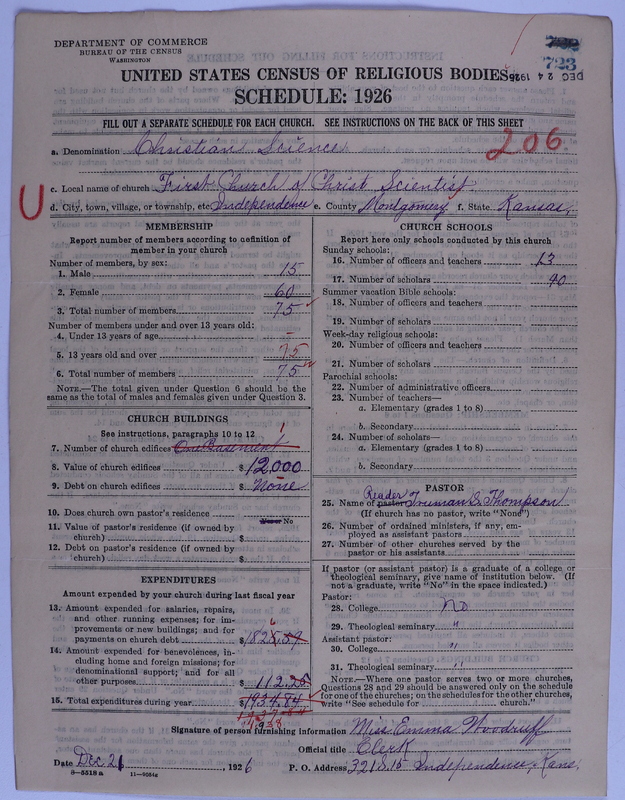 DEPARTMENT OF COMMERCE
BUREAU OF THE CENSUS
WASHINGTON
723
DEC 24 1926
UNITED STATES CENSUS OF RELIGIOUS BODIES
SCHEDULE: 1926
FILL OUT A SEPARATE SCHEDULE FOR EACH CHURCH. SEE INSTRUCTIONS ON THE BACK OF THIS SHEET
206.
a. Denomination Christian Science
U
c. Local name of church First Church of Christ Scientist
d. City, town, village, or township, etc. Independence e. County Montgomery f. State Kansas,
MEMBERSHIP
Report number of members according to definition of
member in your church
Number of members, by sex:
1. Male 15
2. Female 60
3. Total number of members 75
Number of members under and over 13 years old:
4. Under 13 years of age –
5. 13 years old and over 75
6. Total number of members 75
NOTE.—The total given under Question 6 should be the
same as the total of males and females given under Question 3.
CHURCH BUILDINGS
See instructions, paragraphs 10 to 12
7. Number of church edifices One Basement 1
8. Value of church edifices $ 12,000
9. Debt on church edifices $ None
10. Does church own pastor's residence No
11. Value of pastor's residence (if owned by
church) $
12. Debt on pastor's residence (if owned by
church) $
EXPENDITURES
Amount expended by your church during last fiscal year
13. Amount expended for salaries, repairs,
and other running expenses; for im-
provements or new buildings; and for
payments on church debt $ 1825.59
14. Amount expended for benevolences, in-
cluding home and foreign missions; for
denominational support; and for all
other purposes $ 112.25
15. Total expenditures during year $ 1934.84
1938
CHURCH SCHOOLS
Report here only schools conducted by this church
Sunday schools:
16. Number of officers and teachers 13
17. Number of scholars 40
Summer vacation Bible schools:
18. Number of officers and teachers
19. Number of scholars
Week-day religious schools:
20. Number of officers and teachers
21. Number of scholars
Parochial schools:
22. Number of administrative officers
23. Number of teachers—
a. Elementary (grades 1 to 8)
b. Secondary
24. Number of scholars—
a. Elementary (grades 1 to 8)
b. Secondary
PASTOR
Reader
25. Name of pastor Truman S. Thompson
(If church has no pastor, write "None")
26. Number of ordained ministers, if any, em-
ployed as assistant pastors
27. Number of other churches served by the
pastor or his assistants
If pastor (or assistant pastor) is a graduate of a college or
theological seminary, give name of institution below. (If
not a graduate, write "No" in the space indicated.)
Pastor:
28. College No
29. Theological seminary "
Assistant pastor:
30. College "
31. Theological seminary "
NOTE.—Where one pastor serves two or more churches,
Questions 28 and 29 should be answered only on the schedule
for one of the churches; on the schedules for the other churches,
write "See schedule for church."
Signature of person furnishing information Miss Emma Woodruff
Official title Clerk
Date Dec 21, 1926 P. O. Address, 321 S. 15 Independence, Kans.
8-5518 a 11-9054c